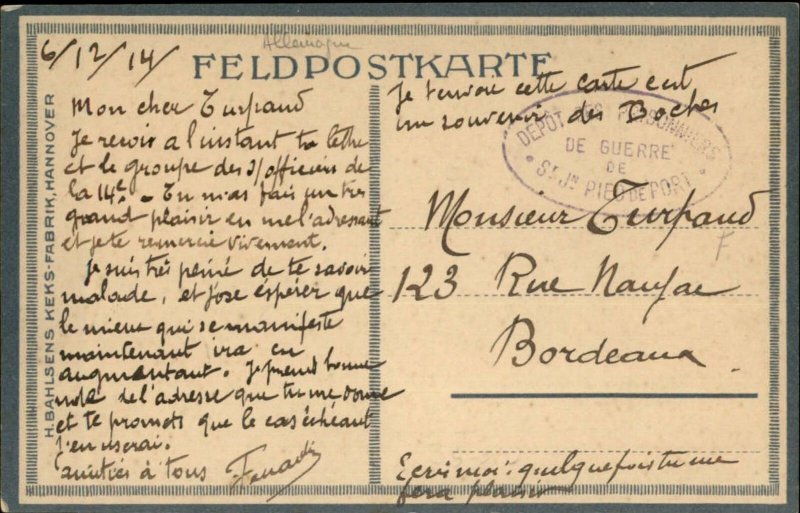 Allemagne
FELDPOSTKARTE
H. BAHLSENS KEKS-FABRIK, HANNOVER
6/12/14/
Mon cher Turpaud
Je reçois a l'instant ta lettre
et le groupe des s/officiers de
la 14e. - Tu m'as fais un très
grand plaisir en me l'adressant
et je te remercie vivement.
Je suis très peiné de te savoir
malade, et j'ose espérer que
le mieux qui se manifeste
maintenant ira en
augmentant. Je prend bonne
note de l'adresse que tu me donne
et te promets que le cas échéant
j'en userai.
amitiés à tous
Je t'envoie cette carte c'est
un souvenir des Boches
DEPOT DES PRISONNIERS
DE GUERRE
DE
ST JN PIED DE PORT
Monsieur Turpaud
F
123 Rue Naujac
Bordeaux
Ecris moi quelquefois tu me
fera plaisir